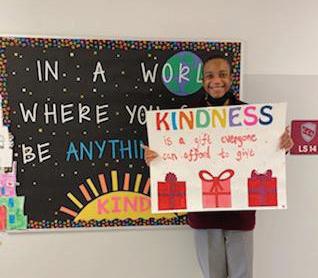 IN A WORL
WHERE YOU
BE ANYTHIN
KIND
KINDNESS
is a gift everyone
can afford to give
LS 14